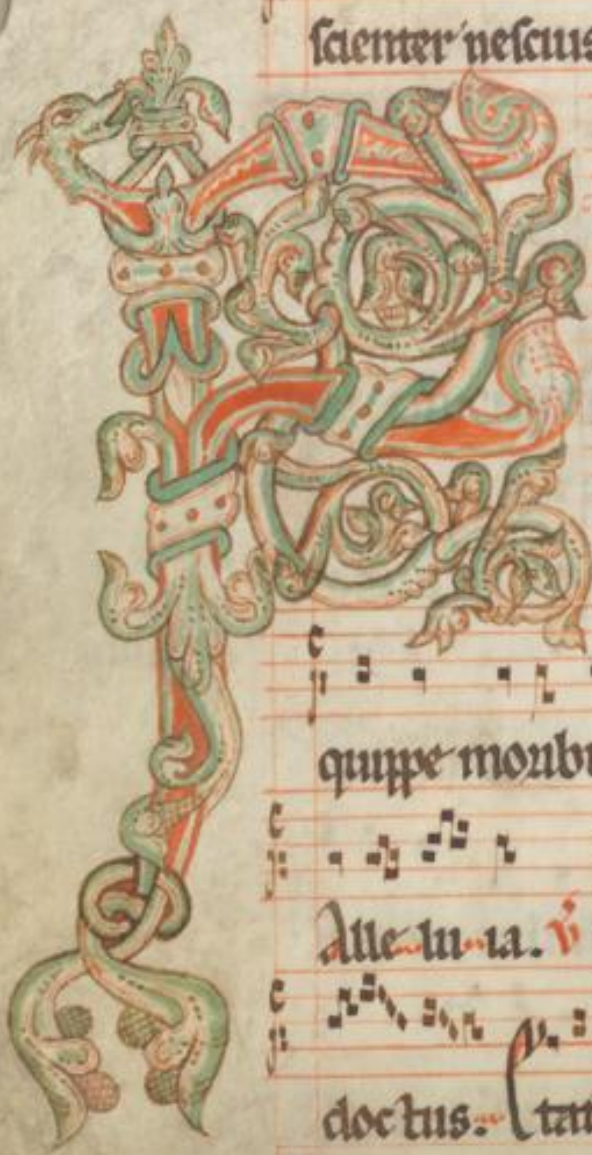 ſcienter neſcius
F
quippe moribu
Alle lu ia. V
doc tus.